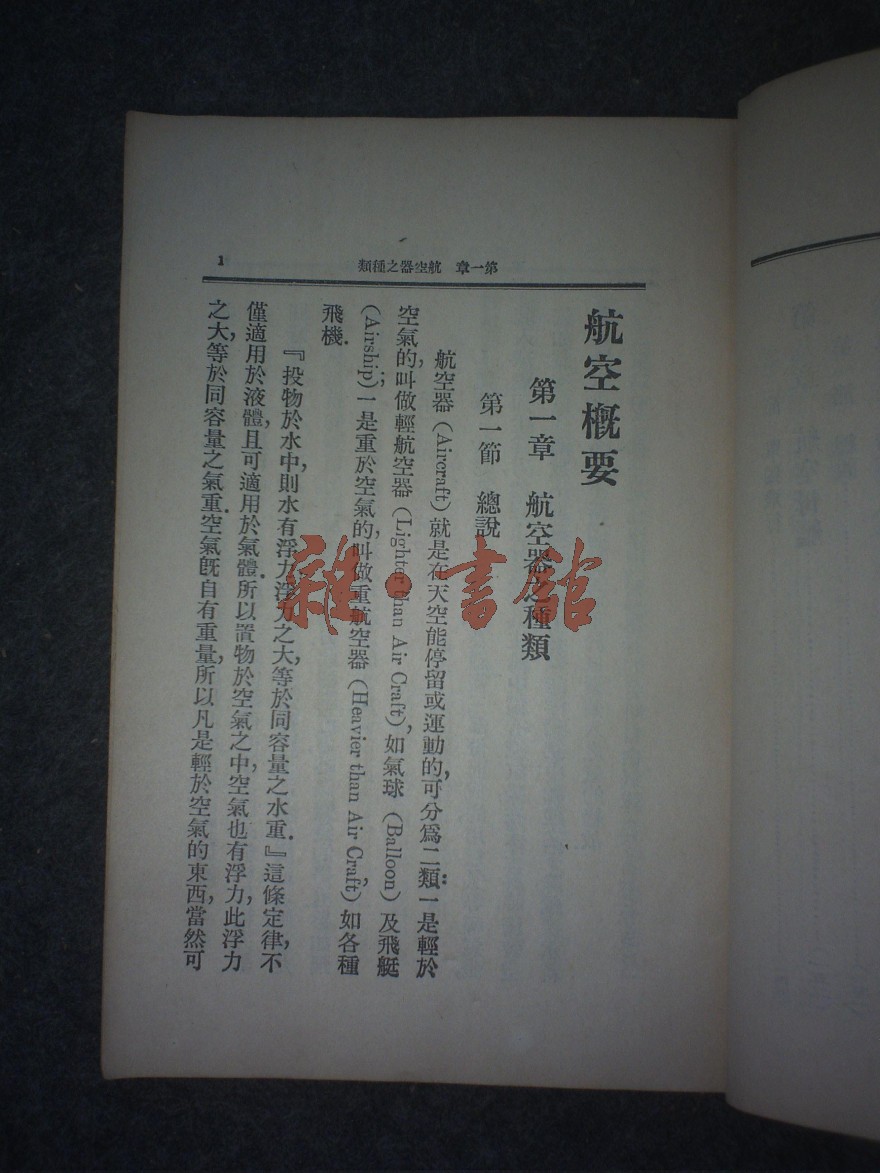 第一章 航空器之種類 1
航空概要
第一章 航空器之種類
第一節 總說
航空器(Aircraft)就是在天空能停留或運動的,可分爲二類:一是輕於
空氣的,叫做輕航空器(Lighter than Air Craft),如氣球(Balloon)及飛艇
(Airship);一是重於空氣的,叫做重航空器(Heavier than Air Craft),如各種
飛機.
『投物於水中,則水有浮力,浮力之大,等於同容量之水重.』這條定律,不
僅適用於液體,且可適用於氣體.所以置物於空氣之中,空氣也有浮力,此浮力
之大,等於同容量之氣重.空氣旣自有重量,所以凡是輕於空氣的東西,當然可
雜·書館